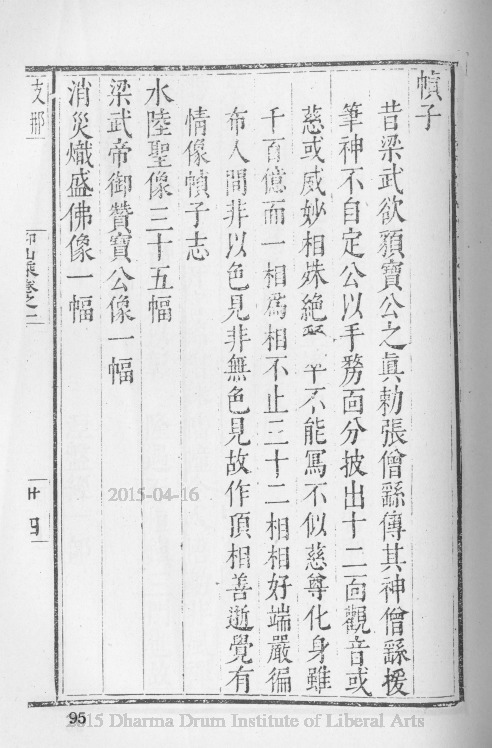 幀子
昔梁武欲䫉寶公之真勅張僧繇傳其神僧繇援
筆神不自定公以手剺面分披出十二面觀音或
慈或威妙相姝絶 不能寫不似慈尊化身雖
千百億而一相爲相不止三十二相相好端嚴徧
布人間非以色見非無色見故作頂相善逝覺有
情像幀子志
水陸聖像三十五幅
梁武帝御贊寶公像一幅
消災熾盛佛像一幅
支那
卷之二
廿四
2015-04-16
95
2015 Dharma Drum Institute of Liberal Arts